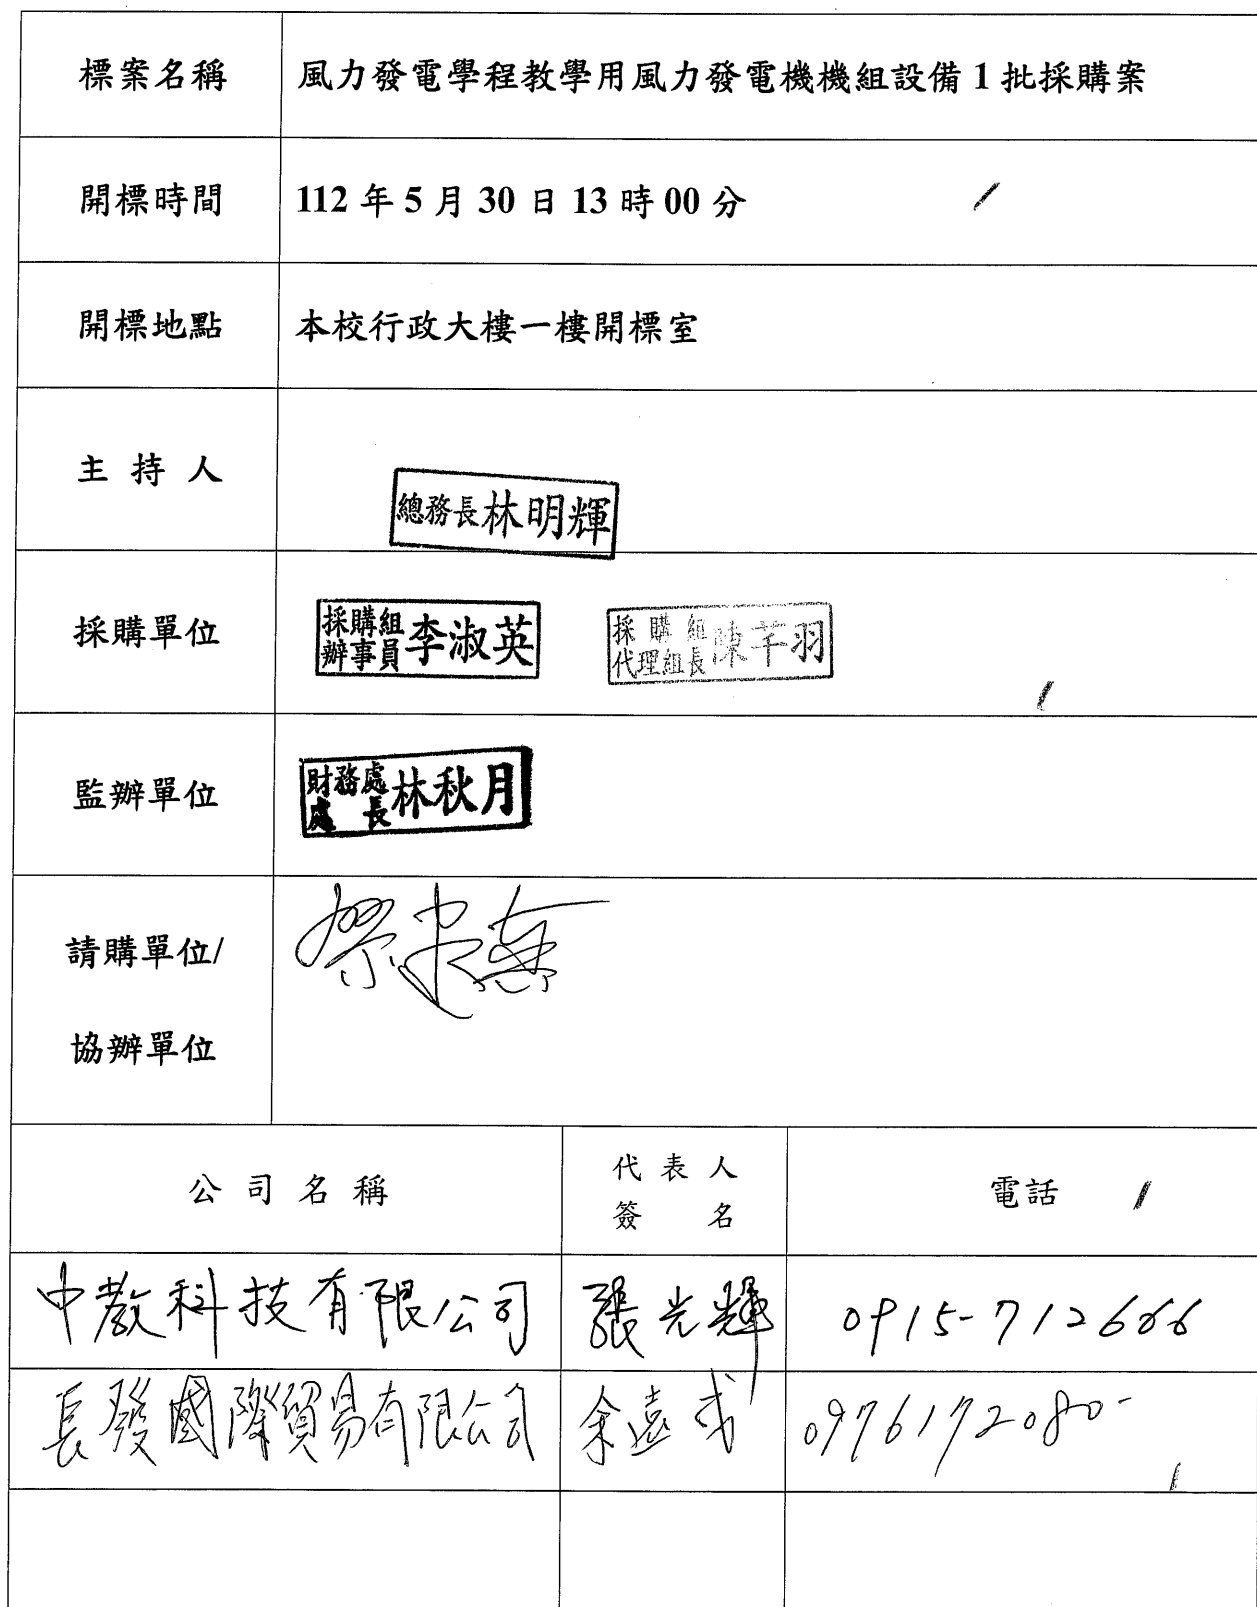 標案名稱 風力發電學程教學用風力發電機機組設備1批採購案
開標時間 112年5月30日13時00分
開標地點 本校行政大樓一樓開標室
主持人
總務長林明輝
採購單位 採購組辦事員李淑英 採購組代理組長陳芊羽
監辦單位 財務處處長林秋月
請購單位/
協辦單位
公司名稱 代表人簽名 電話
中教科技有限公司 張光輝 0915-712666
長發國際貿易有限公司 余遠 0976172080